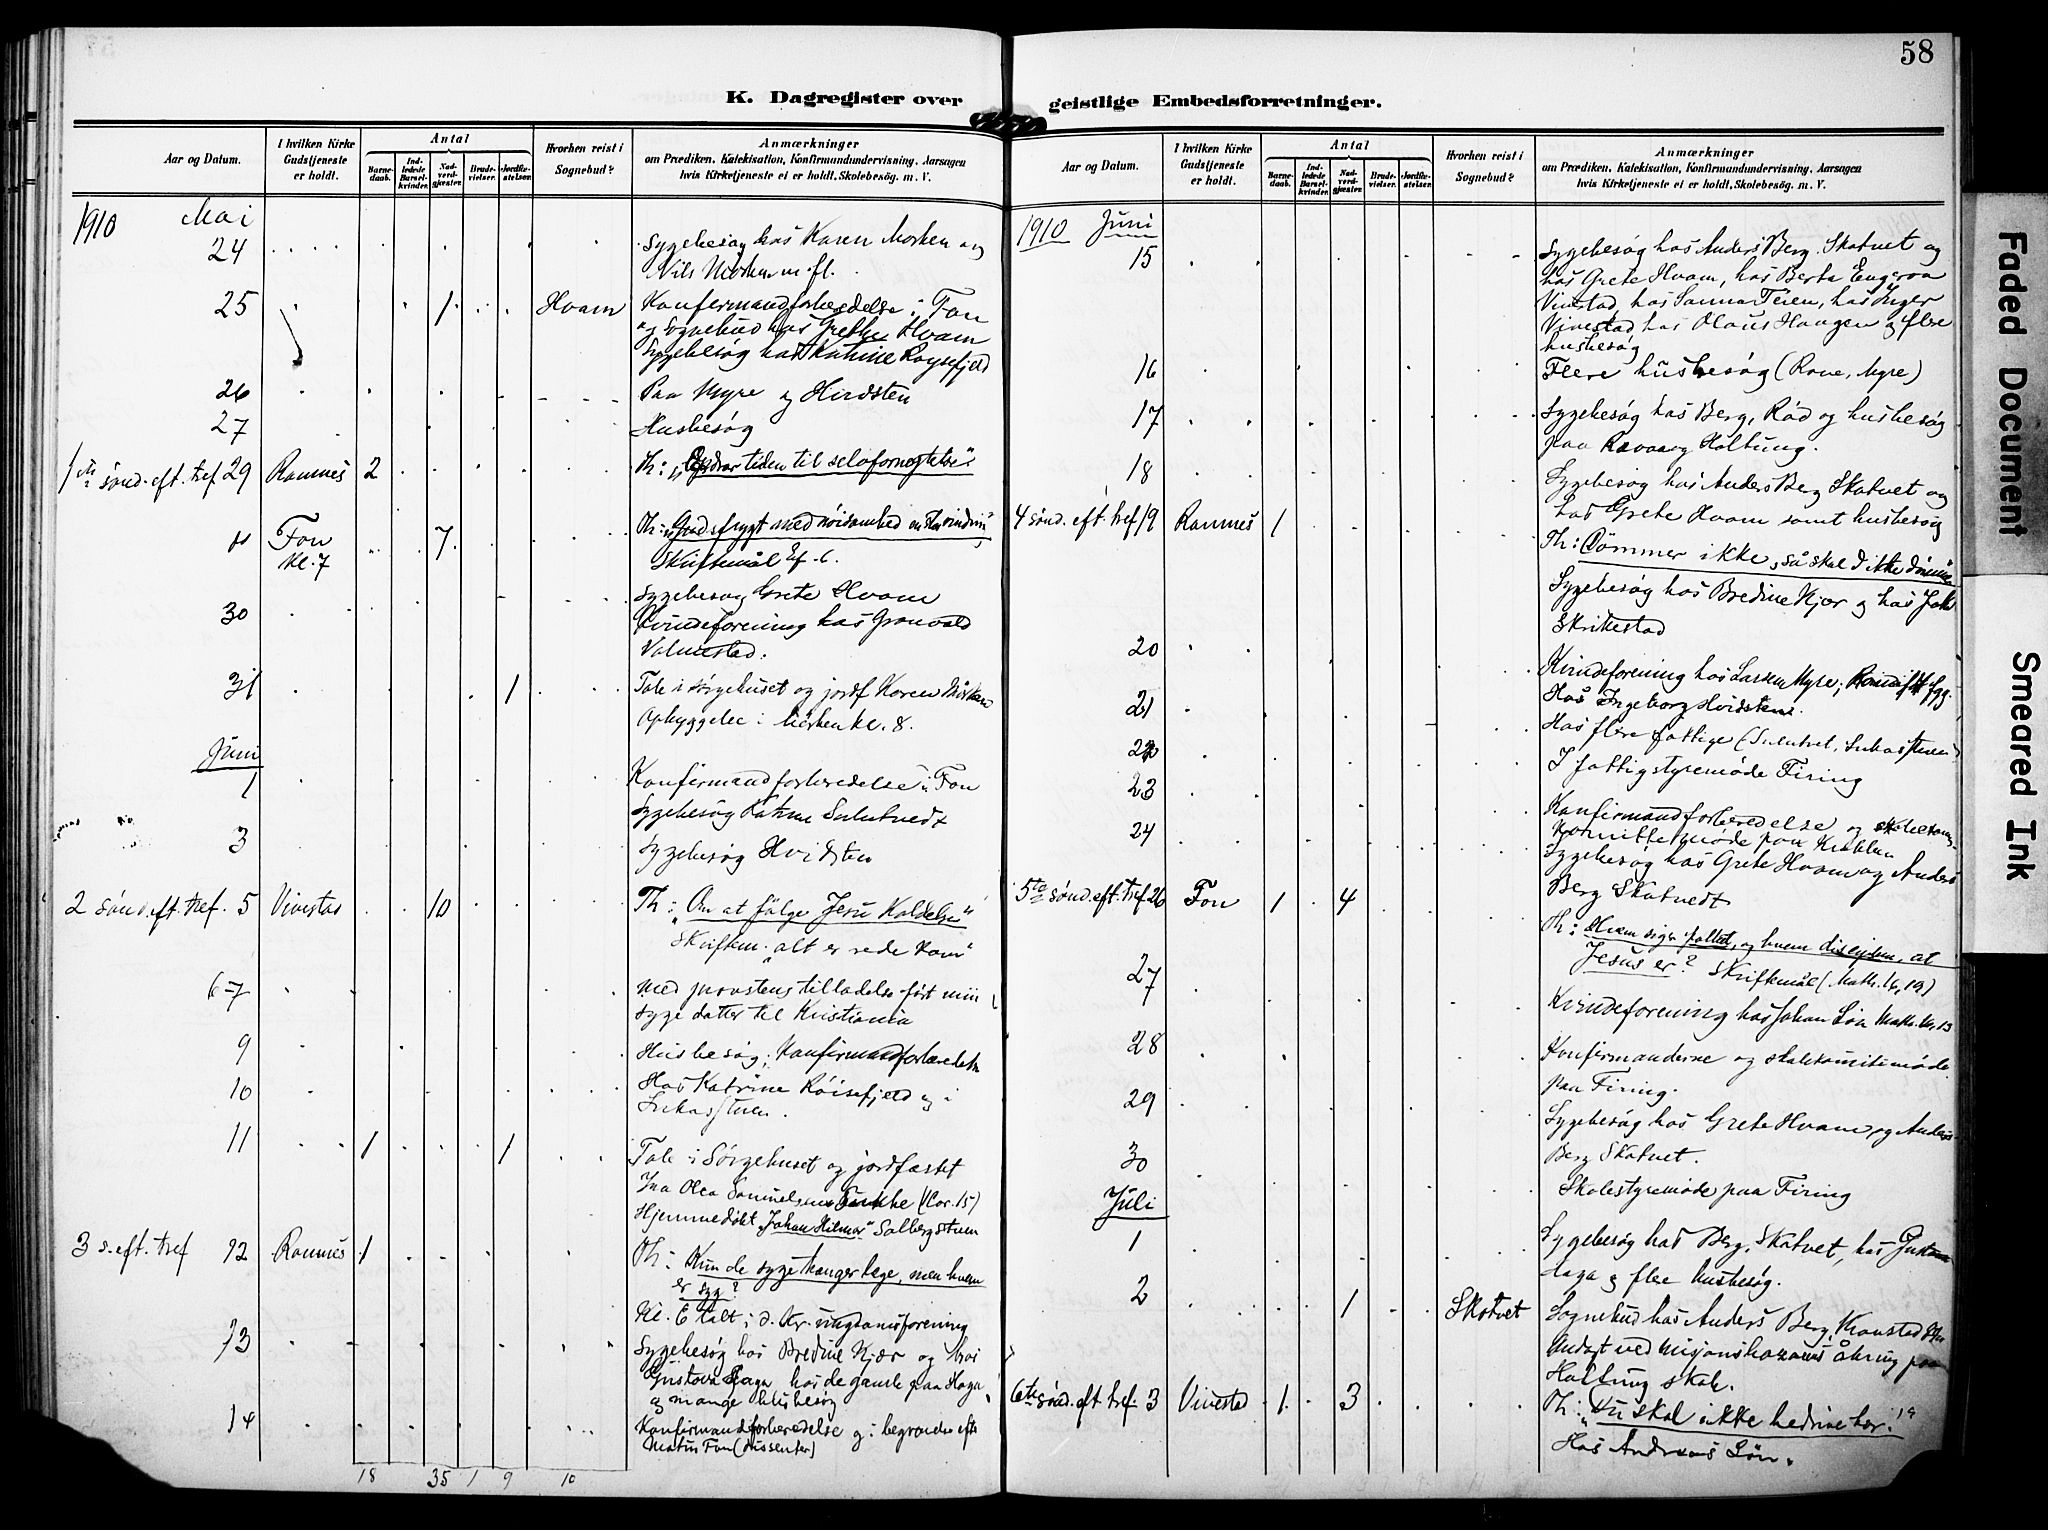 58
K. Dagregister over geistlige Embedsforretninger.
Aar og Datum.
I hvilken Kirke Gudstjeneste er holdt.
Antal
Barnedaab.
Indledede Barselkvinder.
Nadverdgjester.
Brudevielser.
Jordfæstelser.
Hvorhen reist i Sognebud?
Anmærkninger
om Prædiken, Katekisation, Konfirmandundervisning, Aarsagen
hvis Kirketjeneste ei er holdt, Skolebesøg. m. V.
1910 Mai
24 Sygebesøg hos Karen Morken og
Nils m. fl.
25 1 Hvam Konfirmandforberedelse i Fon
og Sognebud hos Grethe Hvam
Sygebesøg hos Katrine Røysefjeld
26 Paa Myre og Hvidsten
27 Husbesøg
1ste sønd. eft. tref 29 Ramnes 2 Th: „Opdrar tiden til selvfornegtelse“
" Fon kl. 7 7 Th: „Gudsfrygt med nøisomhed en stor vinding“
Skriftemål Ef. 6.
30 Sygebesøg Grete Hvam
Kvindeforening hos Gronvold
Valmestad.
31 1 Tale i sørgehuset og jordf. Karen
Opbyggelse i kirken kl. 8.
Juni
1 Konfirmandforberedelse i Fon
Sygebesøg Katrine Sulutvedt
3 Sygebesøg Hvidsten
2 sønd. eft. tref. 5 Vivestad 10 Th: „Om at følge Jesu Kaldelse“
Skriftem. „alt er rede kom“
6-7 Med provstens tilladelse ført min
syge datter til Kristiania
9 Husbesøg; Konfirmandforberedelse
10 Hos Katrine Røisefjeld og i
Lukasstuen.
11 1 1 Tale i Sørgehuset og jordfæstet
Ina Olea Samuelsen (1 Cor. 15)
Hjemmedøbt „Johan Hilmar“ Solbergstuen
3 s. eft. tref 12 Ramnes 1 Th: Kun de syge trænger læge, men hvem
er syg?
Kl. 6 talt i d. Kr. ungdomsforening
13 Sygebesøg hos Bredine Kjær og hos
Gustava Haga hos de gamle paa Haga
og mange husbesøg
14 Konfirmandforberedelse og i begravelse efter
Fon (dissenter)
18 35 1 9 10
Aar og Datum.
I hvilken Kirke Gudstjeneste er holdt.
Antal
Barnedaab.
Indledede Barselkvinder.
Nadverdgjester.
Brudevielser.
Jordfæstelser.
Hvorhen reist i Sognebud?
Anmærkninger
om Prædiken, Katekisation, Konfirmandundervisning, Aarsagen
hvis Kirketjeneste ei er holdt, Skolebesøg. m. V.
1910 Juni
15 Sygebesøg hos Anders Berg. Skatvet og
hos Grete Hvam, hos Berta Engeroa
Vivestad, hos Sanna Teien, hos Inger
Vivestad hos Olaus Haugen og flere
husbesøg
16 Flere husbesøg (Rove, Myre)
17 Sygebesøg hos Berg, Råd og husbesøg
paa Ravaa og Holtung.
18 Sygebesøg hos Anders Berg Skatvet og
hos Grete Hvam samt husbesøg
4 sønd. eft. tref 19 Ramnes 1 Th: Dømmer ikke, så skal I ikke dømmes
Sygebesøg hos Bredine Kjær og hos
Skrikestad
20 Kvindeforening hos Larsen Myre;
21 Hos Ingeborg Hvidsten.
22 Hos flere fattige (Sulutvet, Lukasstuen)
23 I fattigstyremøde Firing
24 Konfirmandforberedelse og
møde paa
Sygebesøg hos Grete Hvam og Anders
Berg Skatvedt
5te sønd. eft. tref. 26 Fon 1 4 Th: Hvem siger folket, og hvem disciplene, at
Jesus er? Skriftemål (Math. 16, 19)
27 Kvindeforening hos Johan Løn
28 Konfirmanderne og skolekomitemøde
paa Firing.
29 Sygebesøg hos Grete Hvam og Anders
Berg Skatvet.
30 Skolestyremøde paa Firing
Juli
1 Sygebesøg hos Berg, Skatvet, hos Gustava
Haga og flere husbesøg.
2 1 Skatvet Sognebud hos Anders Berg,
Andagt ved åbning paa
Holtung skole.
6te sønd. eft tref. 3 Vivestad 1 3 Th: „Du skal ikke bedrive hor.“
Hos Andreas Løn.
Faded Document
Smeared Ink